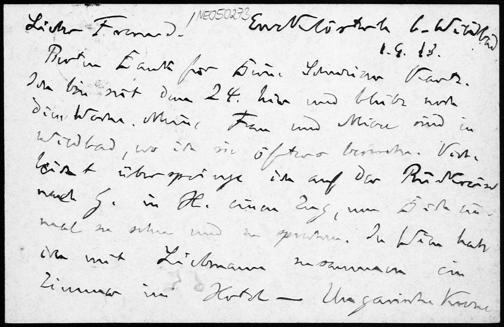 NE050273
Lieber Freund. Enzklösterle b. Wildbad
1.9.13.
Besten Dank für Deine Schweizer Karte.
Ich bin seit dem 24. hier und bleibe noch
diese Woche. Meine Frau und Mieze sind in
Wildbad, wo ich sie öfters besuche. Viel-
leicht überspringe ich auf der Rückreise
nach G. in H. einen Zug, um Dich ein-
mal zu sehen und zu sprechen. In Wien habe
ich mit Liebmann zusammen ein
Zimmer im Hotel — Ungarische Krone